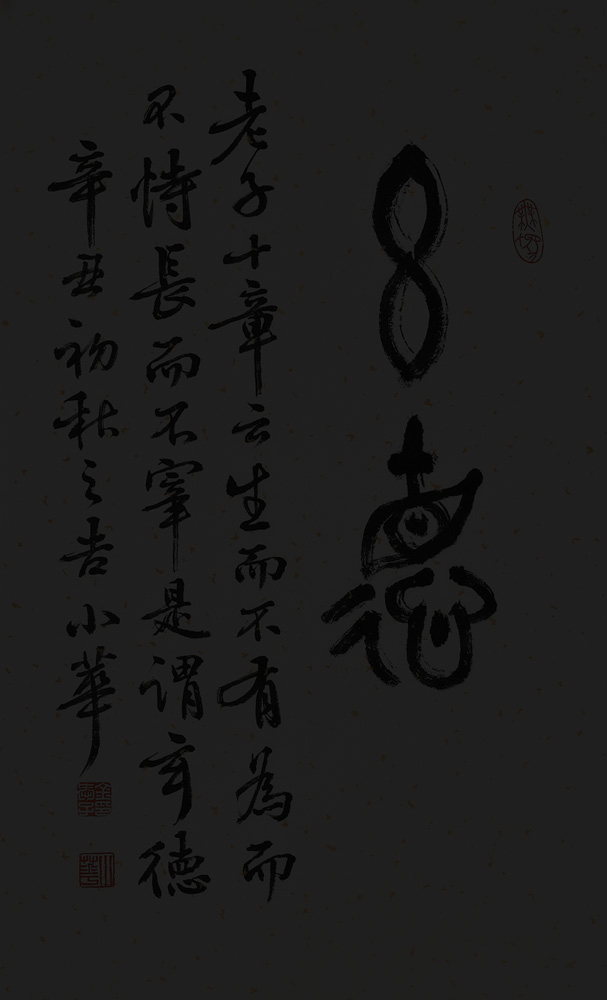 玄德
老子十章云生而不有為而
不恃長而不宰是謂玄德
辛丑初秋之吉小華
小華